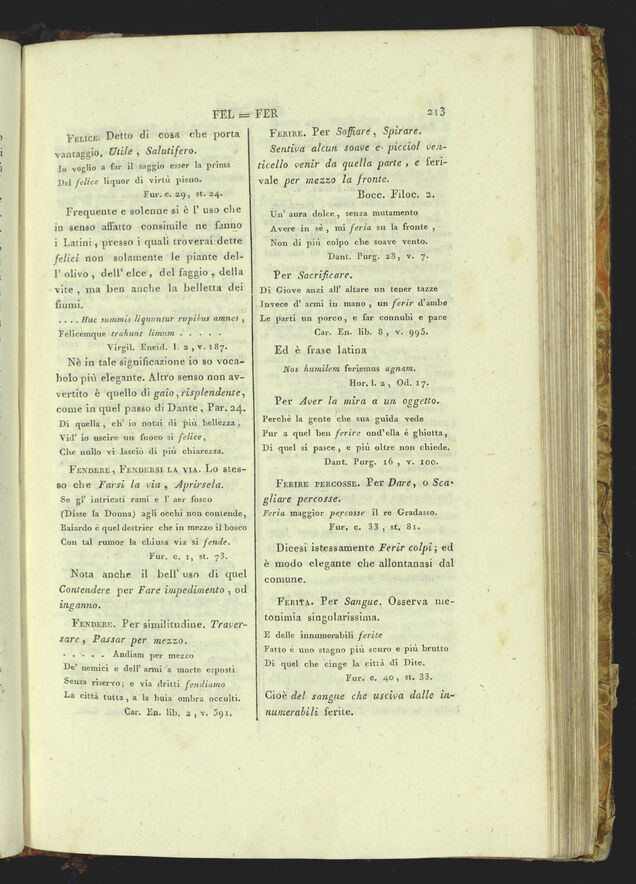 FEL = FER 213
FELICE. Detto di cosa che porta
vantaggio, Utile, Salutifero.
Io voglio a far il saggio esser la prima
Del felice liquor di virtù pieno.
Fur. c. 29, st. 24.
Frequente e solenne si è l' uso che
in senso affatto consimile ne fanno
i Latini, presso i quali troverai dette
felici non solamente le piante del-
l' olivo, dell' elce, del faggio, della
vite, ma ben anche la belletta dei
fiumi.
.... Huc summis liquuntur rupibus amnes,
Felicemque trahunt limum . . . . .
Virgil. Eneid. l. 2, v. 187.
Nè in tale significazione io so voca-
bolo più elegante. Altro senso non av-
vertito è quello di gaio, risplendente,
come in quel passo di Dante, Par. 24.
Di quella, ch' io notai di più bellezza,
Vid' io uscire un fuoco sì felice,
Che nullo vi lasciò di più chiarezza.
FENDERE, FENDERSI LA VIA. Lo stes-
so che Farsi la via, Aprirsela.
Se gl' intricati rami e l' aer fosco
(Disse la Donna) agli occhi non contende,
Baiardo è quel destrier che in mezzo il bosco
Con tal rumor la chiusa via si fende.
Fur. c. 1, st. 73.
Nota anche il bell' uso di quel
Contendere per Fare impedimento, od
inganno.
FENDERE. Per similitudine. Traver-
sare, Passar per mezzo.
. . . . . Andiam per mezzo
De' nemici e dell' armi a morte esposti
Senza riservo; e via dritti fendiamo
La città tutta, a la buia ombra occulti.
Car. En. lib. 2, v. 591.
FERIRE. Per Soffiare, Spirare.
Sentiva alcun soave e picciol ven-
ticello venir da quella parte, e feri-
vale per mezzo la fronte.
Bocc. Filoc. 2.
Un' aura dolce, senza mutamento
Avere in sè, mi feria su la fronte,
Non di più colpo che soave vento.
Dant. Purg. 28, v. 7.
Per Sacrificare.
Di Giove anzi all' altare un tener tazze
Invece d' armi in mano, un ferir d'ambe
Le parti un porco, e far connubi e pace
Car. En. lib. 8, v. 995.
Ed è frase latina
Nos humilem feriemus agnam.
Hor. l. 2, Od. 17.
Per Aver la mira a un oggetto.
Perchè la gente che sua guida vede
Pur a quel ben ferire ond'ella è ghiotta,
Di quel si pasce, e più oltre non chiede.
Dant. Purg. 16, v. 100.
FERIRE PERCOSSE. Per Dare, o Sca-
gliare percosse.
Feria maggior percosse il re Gradasso.
Fur. c. 33, st. 81.
Dicesi istessamente Ferir colpi; ed
è modo elegante che allontanasi dal
comune.
FERITA. Per Sangue. Osserva me-
tonimia singolarissima.
E delle innumerabili ferite
Fatto è uno stagno più scuro e più brutto
Di quel che cinge la città di Dite.
Fur. c. 40, st. 33.
Cioè del sangue che usciva dalle in-
numerabili ferite.